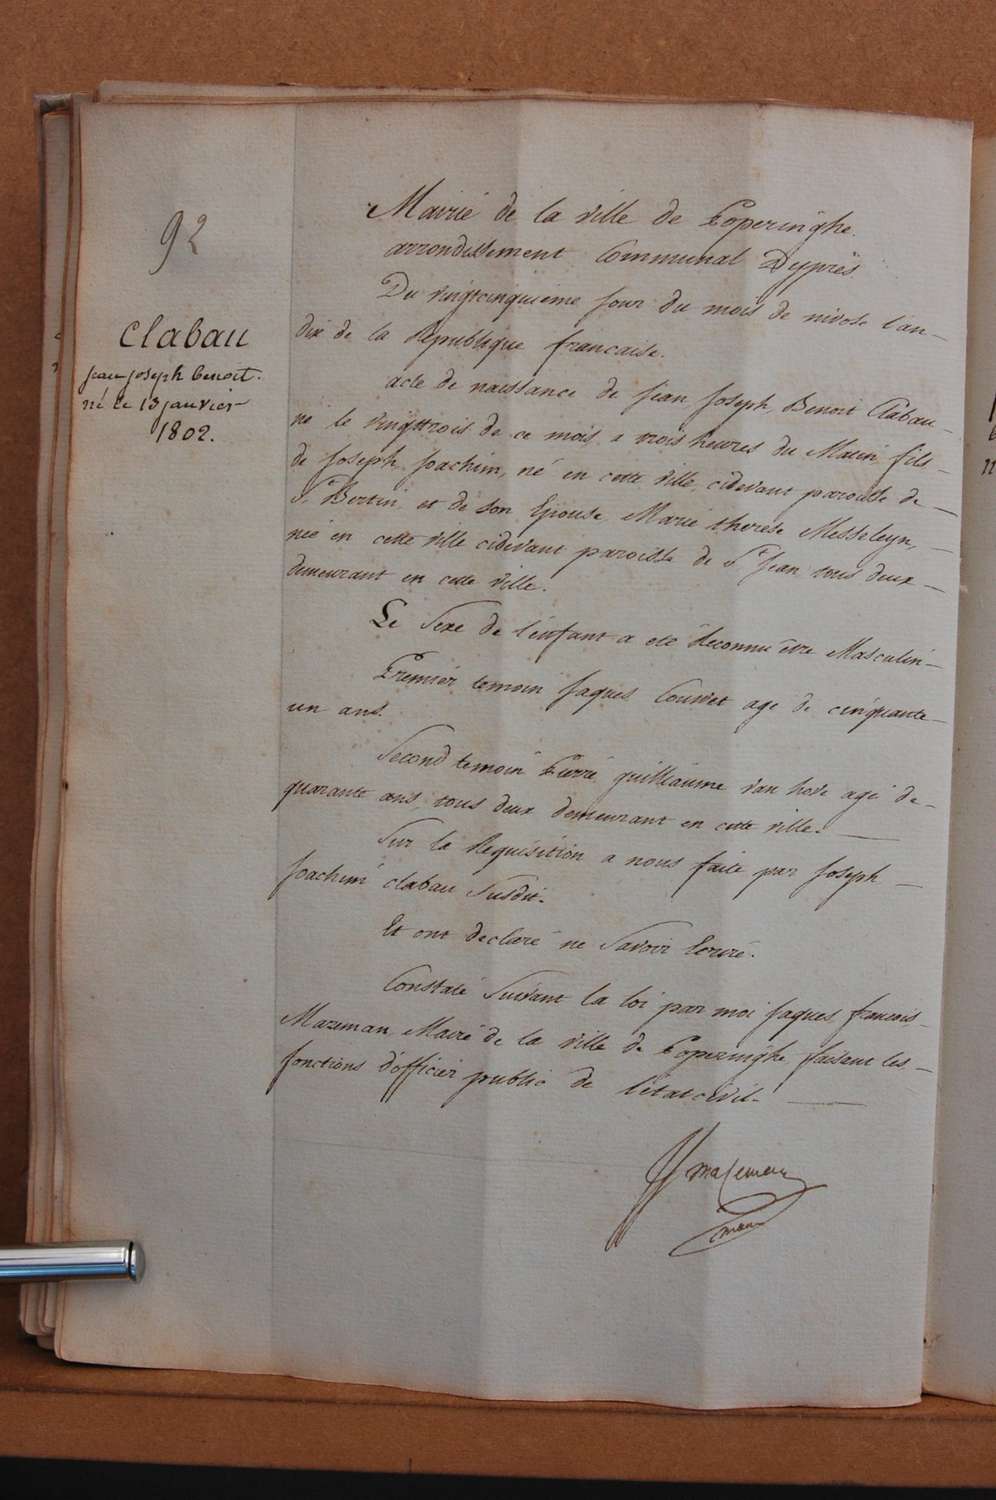 92
Clabau
jean joseph benoit.
né le 13 janvier
1802.
Mairié de la ville de Poperinghe.
arrondissement Communal Dyprès
Du vingtcinquieme jour du mois de nivose l'an
dix de la République francaise.
acte de naissance de jean joseph Benoit Clabau
né le vingttrois de ce mois a trois heures du Matin fils
de joseph joachim, né en cette ville, cidevant paroisse de
St Bertin, et de son Epouse Marie therese Messeleyn,
neé en cette ville cidevant paroisse de St jean tous deux
demeurant en cette ville.
Le Sexe de l'enfant a eté Reconnu être Masculin
Premier temoin jaques Couvret agé de cinquante
un ans.
Second temoin Pierre guilliaume van hove agé de
quarante ans, tous deux demeurant en cette ville.
Sur la Requisition a nous faite par joseph
joachim clabau Susdit.
Et ont declaré ne Savoir Ecrire.
Constaté Suivant la loi par moi jaques francois
Mazeman Maire de la ville de Poperinghe faisant les
fonctions d'officier public de l'état civil.
mazeman